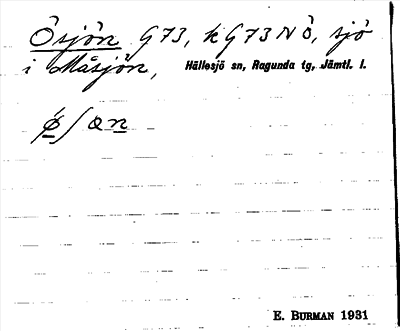 Ösjön G73, k G73NÖ, sjö
i Måsjön, Hällesjö sn, Ragunda tg, Jämtl. l.
E. BURMAN 1931